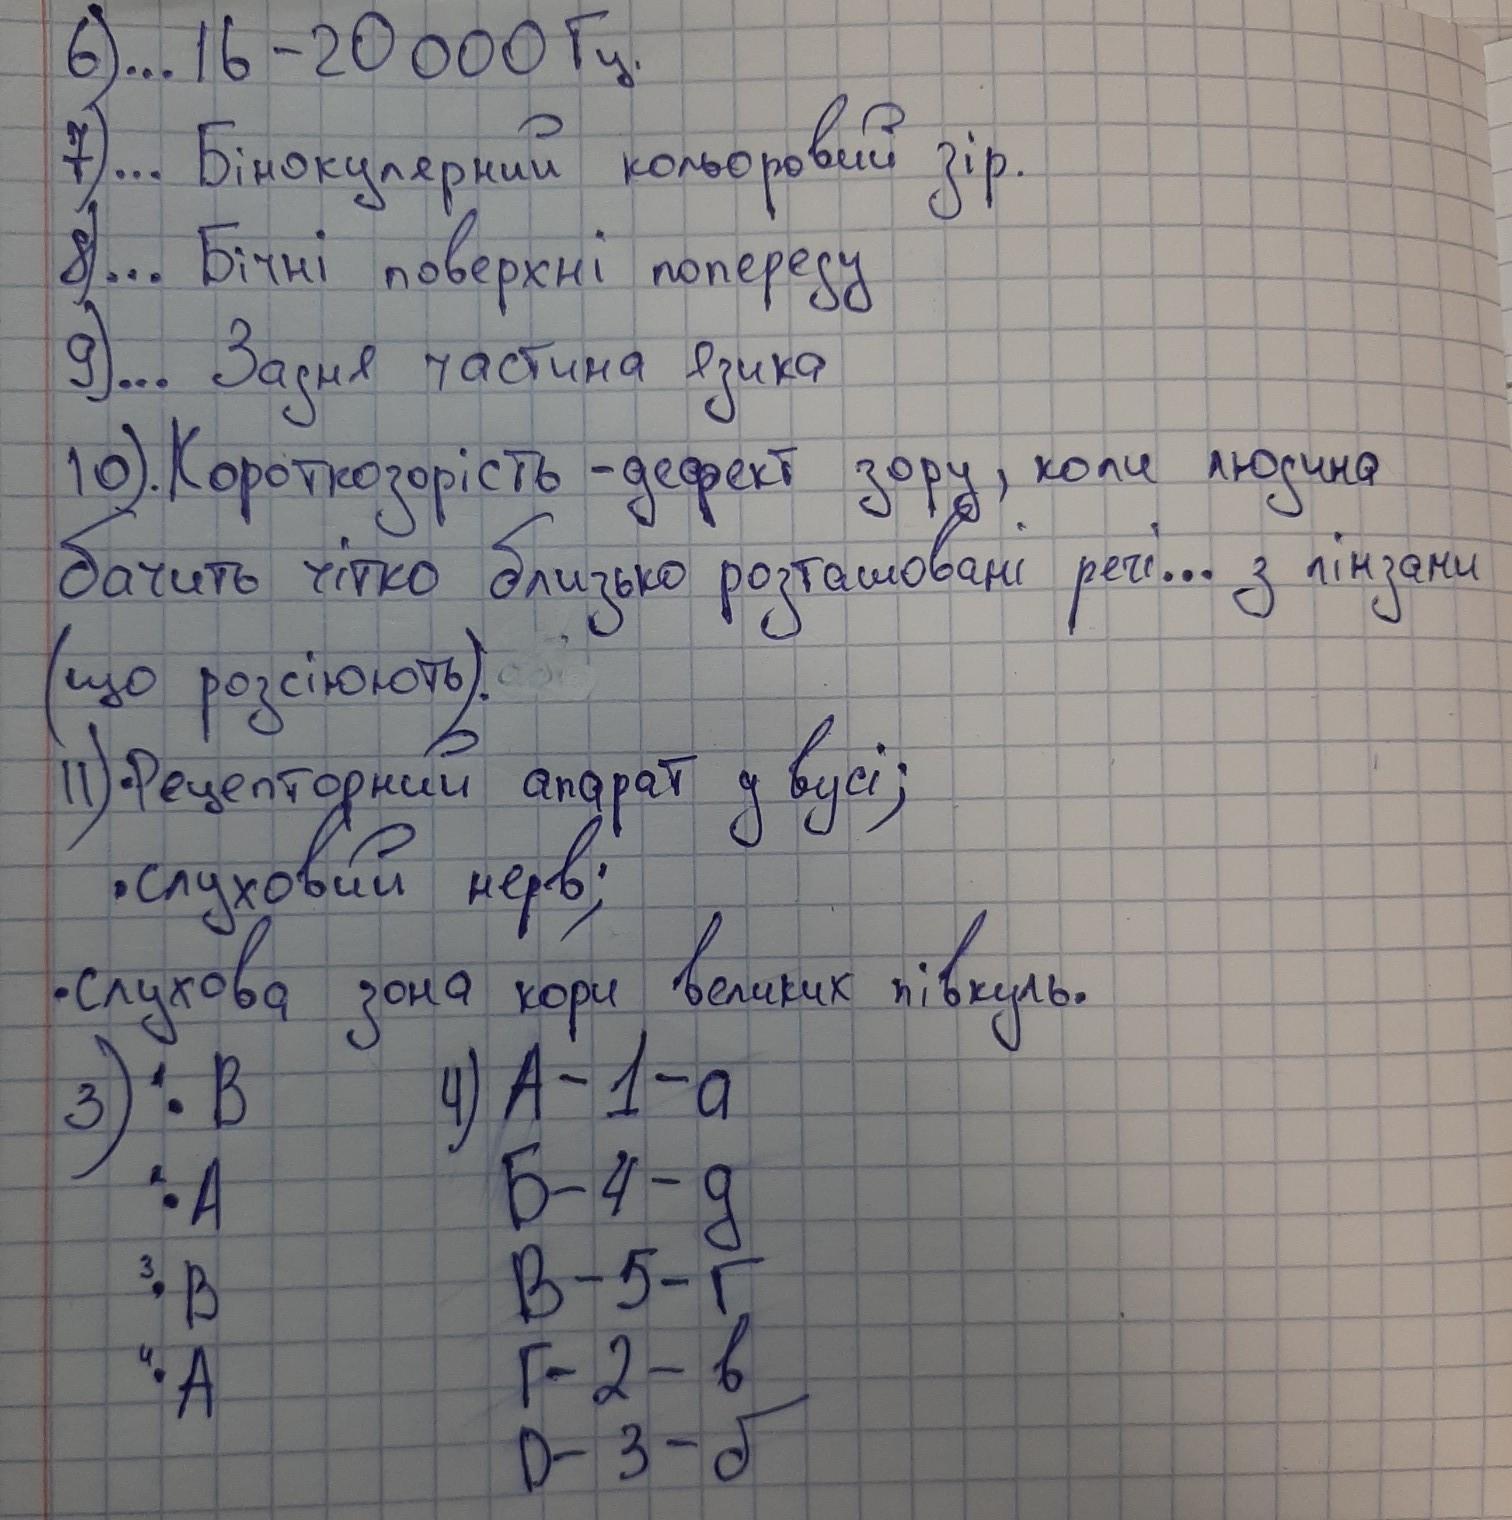 6)... 16-20 000 Гц.
7)... Бінокулярний кольоровий зір.
8)... Бічні поверхні попереду
9)... Задня частина язика
10). Короткозорість - дефект зору, коли людина
бачить чітко близько розташовані речі... з лінзами
(що розсіюють).
11) • Рецепторний апарат у вусі;
• слуховий нерв;
• слухова зона кори великих півкуль.
3) 1. В 4) А - 1 - а
2. А Б - 4 - д
3. В В - 5 - г
4. А Г - 2 - в
D - 3 - б